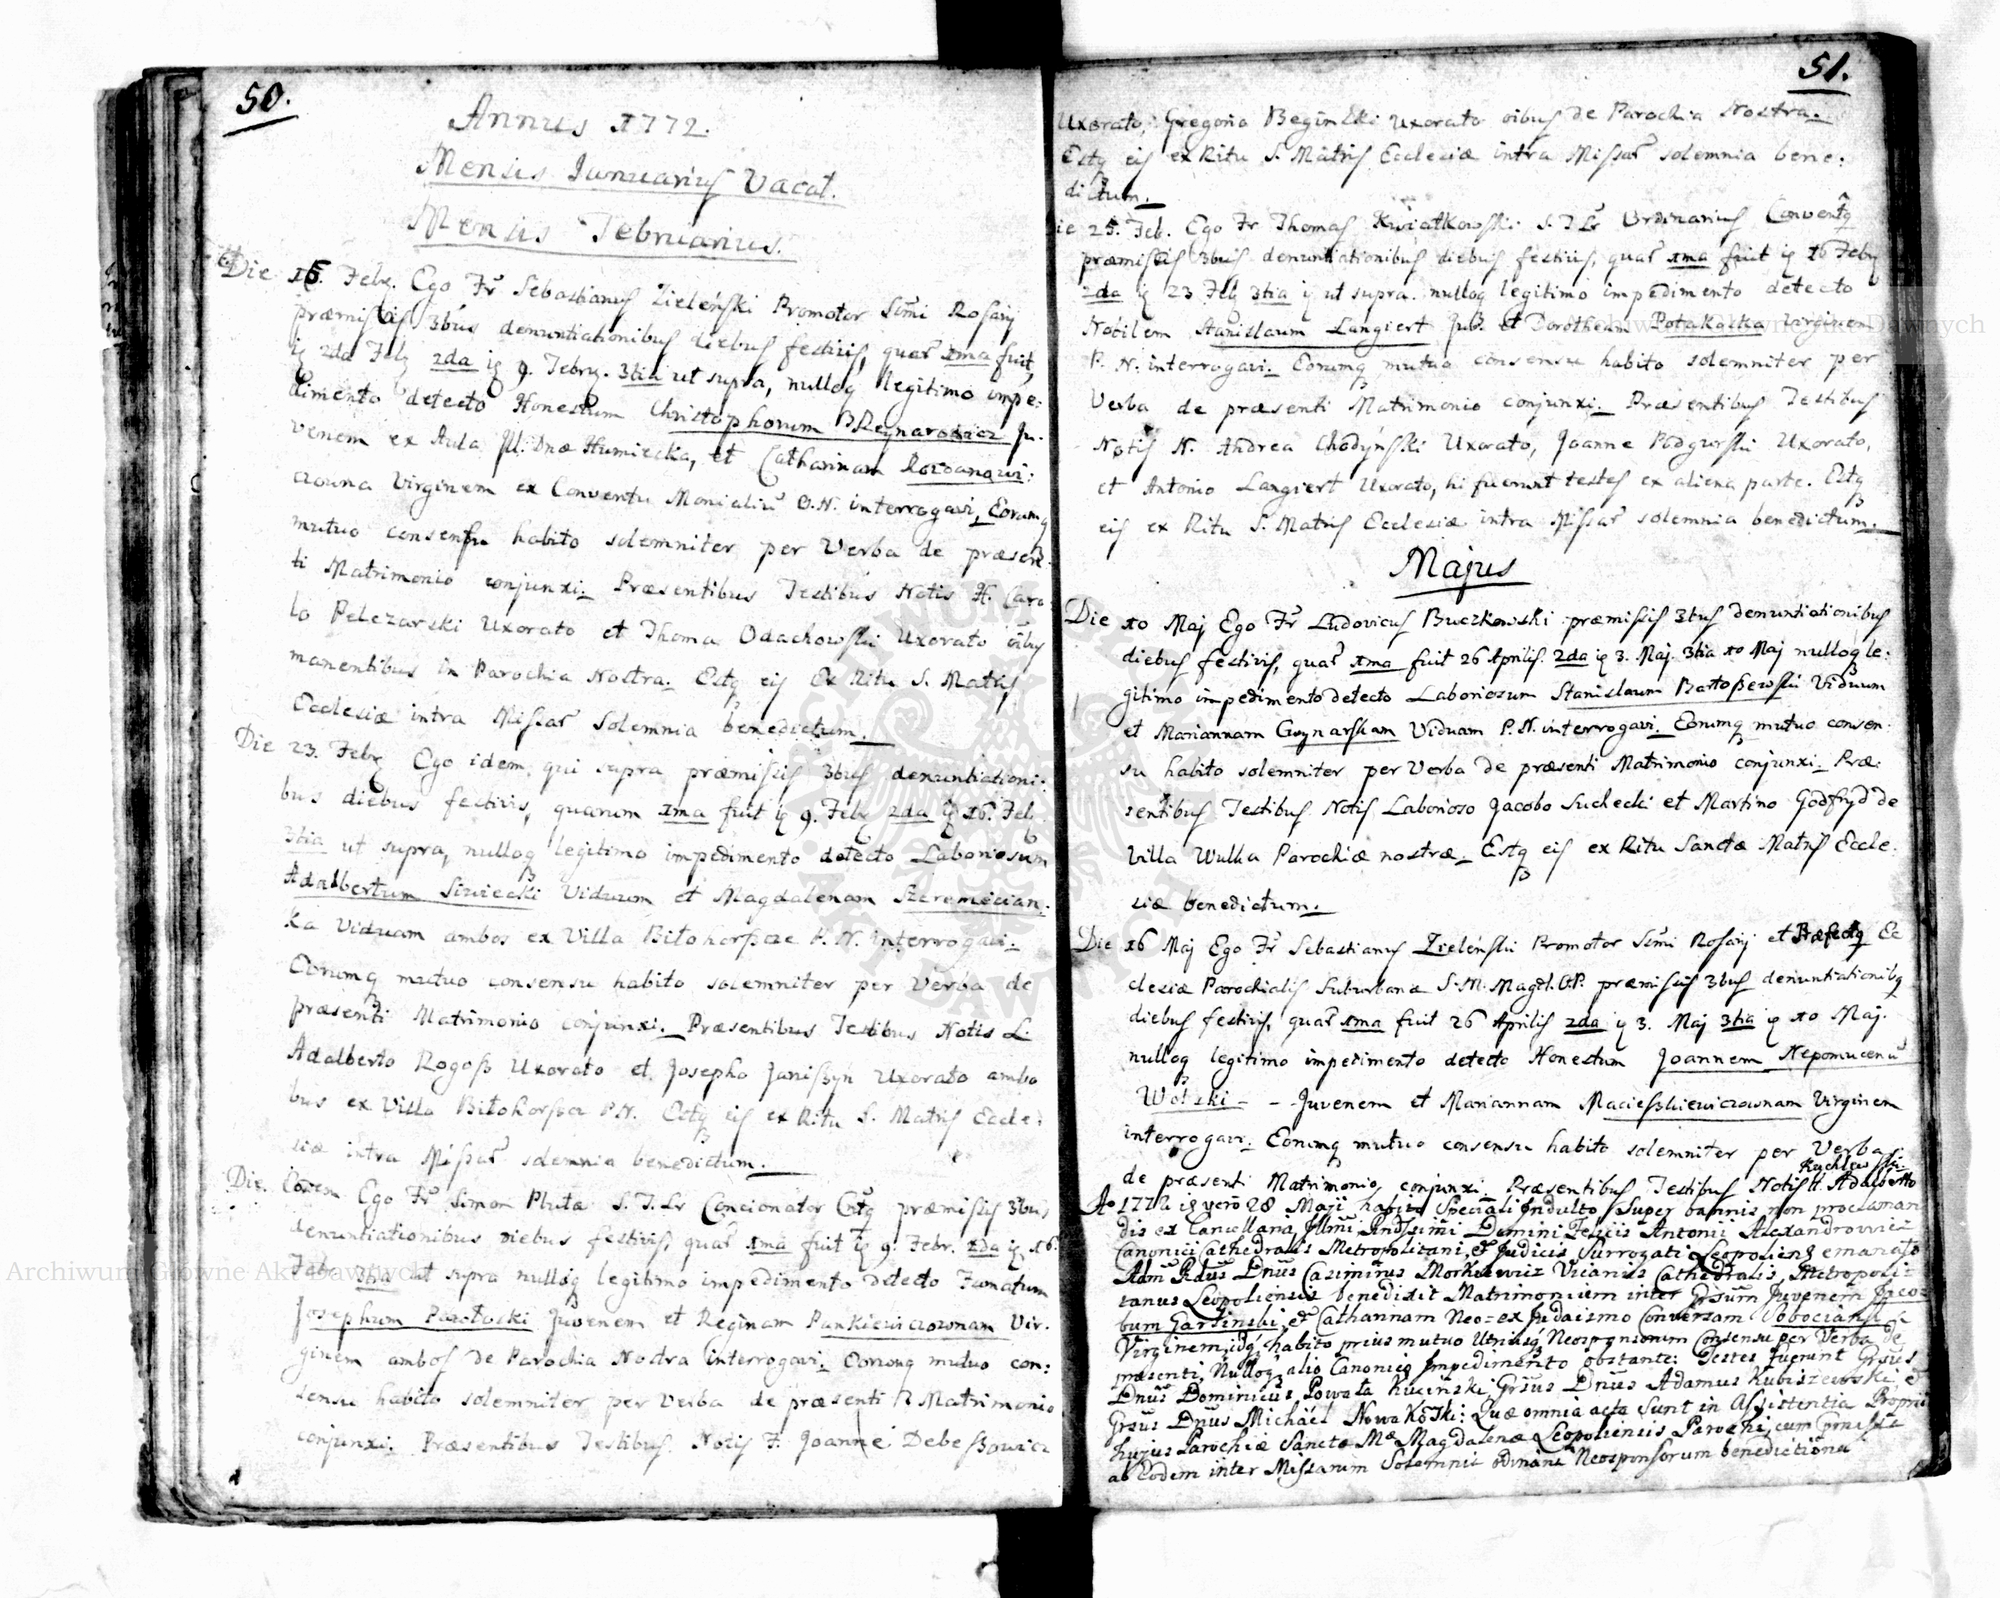 50.
Annus 1772.
Mensis Januariuſ Vacat.
Mensis Februarius.
Die 16. Febr. Ego Fr Sebastianuſ Zieleńſki Promotor Smi Roſarij
præmiſsiſ 3bus denuntiationibuſ diebuſ festiviſ, quar 1ma fuit
iq 2da Feb 2da iq 9. Febry. 3tia ut supra, nulloq legitimo impe:
dimento detecto Honestum Christophorum Ju:
venem ex Aula Jll. Dnæ Humiecka, et Catharinam
czowna Virginem ex Conventu Monialiu O.N. interrogavi, Eorumq
mutuo consenſu habito solemniter per Verba de præsen:
ti Matrimonio conjunxi. Præsentibus Testibus Notis H. Caro
lo Pelczarski Uxorato et Thoma Odachowſki Uxorato oibuſ
manentibus in Parochia Nostra. Estq eiſ Ex Ritu S. Matriſ
Ecclesiæ intra Miſsar Solemnia benedictum.
Die 23. Febr Ego idem, qui supra præmiſsiſ 3buſ denuntiationi:
bus diebus festivis, quarum 1ma fuit iq 9. Feb 2da iq 16. Feb.
3tia ut supra, nulloq legitimo impedimento detecto Laboriosum
Adalbertum Siwiecki Viduum et Magdalenam Szeremecian:
ka Viduam ambos ex Villa Biłohorſzcze P. N. interrogavi
Eorumq mutuo consensu habito solemniter per Verba de
præsenti Matrimonio conjunxi. Præsentibus Testibus Notis L.
Adalberto Rogoſz Uxorato et Josepho Janiſzyn Uxorato ambo
bus ex Villa Biłohorſzcz P.N. Estq eiſ ex Ritu S. Matriſ Eccle:
siæ intra Miſsar solemnia benedictum.
Die Eadem Ego Fr Simon Pluta S.T.Lr Concionator Cntq præmiſsiſ 3buſ
denuntiationibus diebus festiviſ, quar 1ma fuit iq 9. Febr. 2da iq 16.
Febr 3tia ut supra nulloq legitimo impedimento detecto Famatum
Josephum Juvenem et Reginam Pankiewiczownam Vir:
ginem amboſ de Parochia Nostra interrogavi. Eorumq mutuo con:
sensu habito solemniter per Verba de præsenti Matrimonio
conjunxi. Præsentibus Testibuſ Notiſ F. Joanne Debeſzowicz
51.
Uxorato, Gregorio Beginſki Uxorato oibuſ de Parochia Nostra.
Estq eiſ ex Ritu S. Matriſ Ecclesiæ intra Miſsar solemnia bene:
dictum.
Die 25. Feb. Ego Fr Thomaſ Kwiatkowſki S.T.Lr Ordinariuſ Conventq
præmiſsiſ 3buſ denuntiationibuſ diebuſ festiviſ, quar 1ma fuit iq 16 Febr
2da iq 23 Feb 3tia iq ut supra. nulloq legitimo impedimento detecto
Nobilem Stanislaum Langiert Juv. et Dorotheam Virginem
P. N. interrogavi. Eorumq mutuo consensu habito solemniter per
Verba de præsenti Matrimonio conjunxi. Præsentibuſ Testibuſ
Notiſ N. Andrea Chodyńſki Uxorato, Joanne Podgurſki Uxorato,
et Antonio Langiert Uxorato, hi fuerunt testeſ ex aliena parte. Estq
eiſ ex Ritu S. Matriſ Ecclesiæ intra Miſsar solemnia benedictum.
Majus
Die 10 Maj Ego Fr Ludovicuſ Buczkowski præmiſsiſ 3buſ denuntiationibuſ
diebuſ festiviſ, quar 1ma fuit 26 Apriliſ. 2da iq 3. Maj. 3tia 10 Maj nulloq le:
gitimo impedimento detecto Laboriosum Stanislaum Bartoſzewſki Viduum
et Mariannam Gwynarſkam Viduam P. N. interrogavi. Eorumq mutuo consen:
su habito solemniter per Verba de præsenti Matrimonio conjunxi. Præ:
sentibuſ Testibuſ Notiſ Laborioso Jacobo Suchecki et Martino Godfryd de
Villa Wulka Parochiæ nostræ. Estq eiſ ex Ritu Sanctæ Matriſ Eccle:
siæ benedictum.
Die 16 Maj Ego Fr Sebastianuſ Zieleńſki Promotor Smi Roſarij et Præfectq Ec
clesiæ Parochialiſ Suburbanæ S.M. Magdl. O.P. præmiſsiſ 3buſ denuntiationibq
diebuſ festiviſ, quar 1ma fuit 26 Apriliſ 2da iq 3. Maj 3tia iq 10 Maj.
nulloq legitimo impedimento detecto Honestum Joannem Nepomucenu
Wolski - - Juvenem et Mariannam Macieſzkiewiczownam Virginem
interrogavi. Eorumq mutuo consensu habito solemniter per Verba
de præsenti Matrimonio conjunxi. Præsentibuſ Testibuſ Notiſ H. Adalberto
Ao 1772 is vero 28 Maji habito Speciali Indulto Super bannis non proclaman
dis ex Cancellaria Jllmi Rndſsimi Domini Felicis Antonii Alexandrowicz
Canonici Cathedralis Metropolitani, et Judicis Surrogati Leopolienſ emanato
Adm Rdus Dnus Casimirus Morkiewicz Vicarius Cathedralis, Metropoli:
tanus Leopoliensis benedixit Matrimonium inter Grsum Juvenem Jaco:
bum Garlinski, et Catharinam Neo=ex Judaismo Conversam
Virginem, idq habito prius mutuo Utriusq Neosponsorum Consensu per Verba de
præsenti, Nulloq alio Canonico Impedimento obstante: Testes fuerunt Grsus
Dnus Dominicus Powała Kucinski, Grsus Dnus Adamus Kubiszewski, et
Grsus Dnus Michael Nowakoski: Quæ omnia acta Sunt in Aſsistentia Proprii
hujus Parochiæ Sanctæ Mæ Magdalenæ Leopoliensis Parochi, cum
ab Eodem inter Miſsarum Solemnia Neosponſorum benedictiona